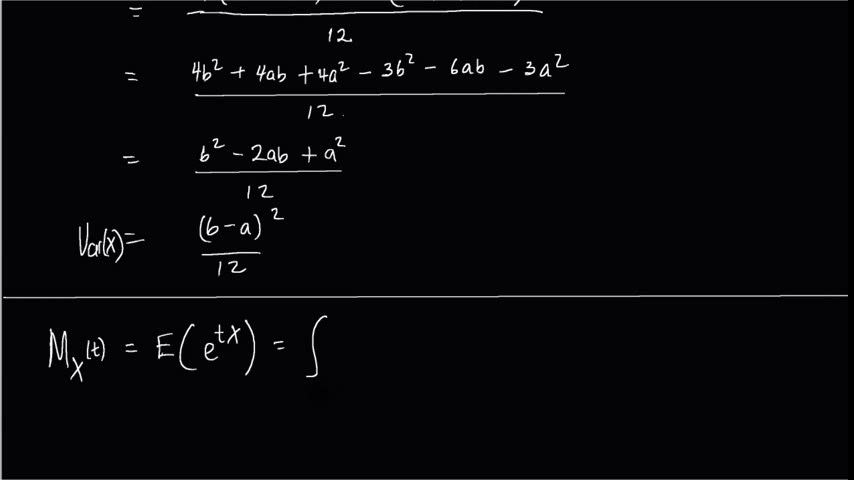 =
12
= 4b² + 4ab + 4a² - 3b² - 6ab - 3a²
12.
= b² - 2ab + a²
12
Var(X) = (b-a)²
12
M_X(t) = E(e^{tX}) = ∫